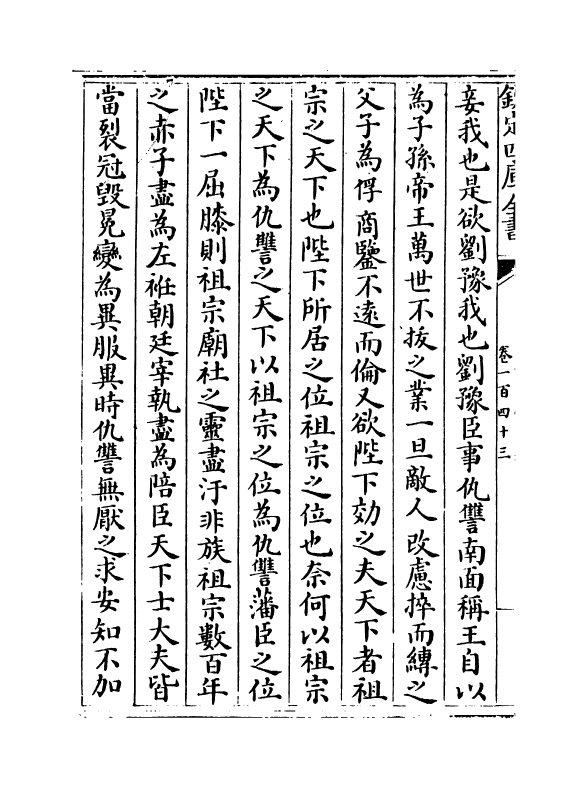 欽定四庫全書
卷一百四十三
妾我也是欲劉豫我也劉豫臣事仇讐南面稱王自以
為子孫帝王萬世不拔之業一旦敵人改慮捽而縛之
父子為俘商鑒不逺而倫又欲陛下効之夫天下者祖
宗之天下也陛下所居之位祖宗之位也奈何以祖宗
之天下為仇讐之天下以祖宗之位為仇讐藩臣之位
陛下一屈膝則祖宗廟社之靈盡汙非族祖宗數百年
之赤子盡為左袵朝廷宰執盡為陪臣天下士大夫皆
當裂冠毀冕變為異服異時仇讐無厭之求安知不加